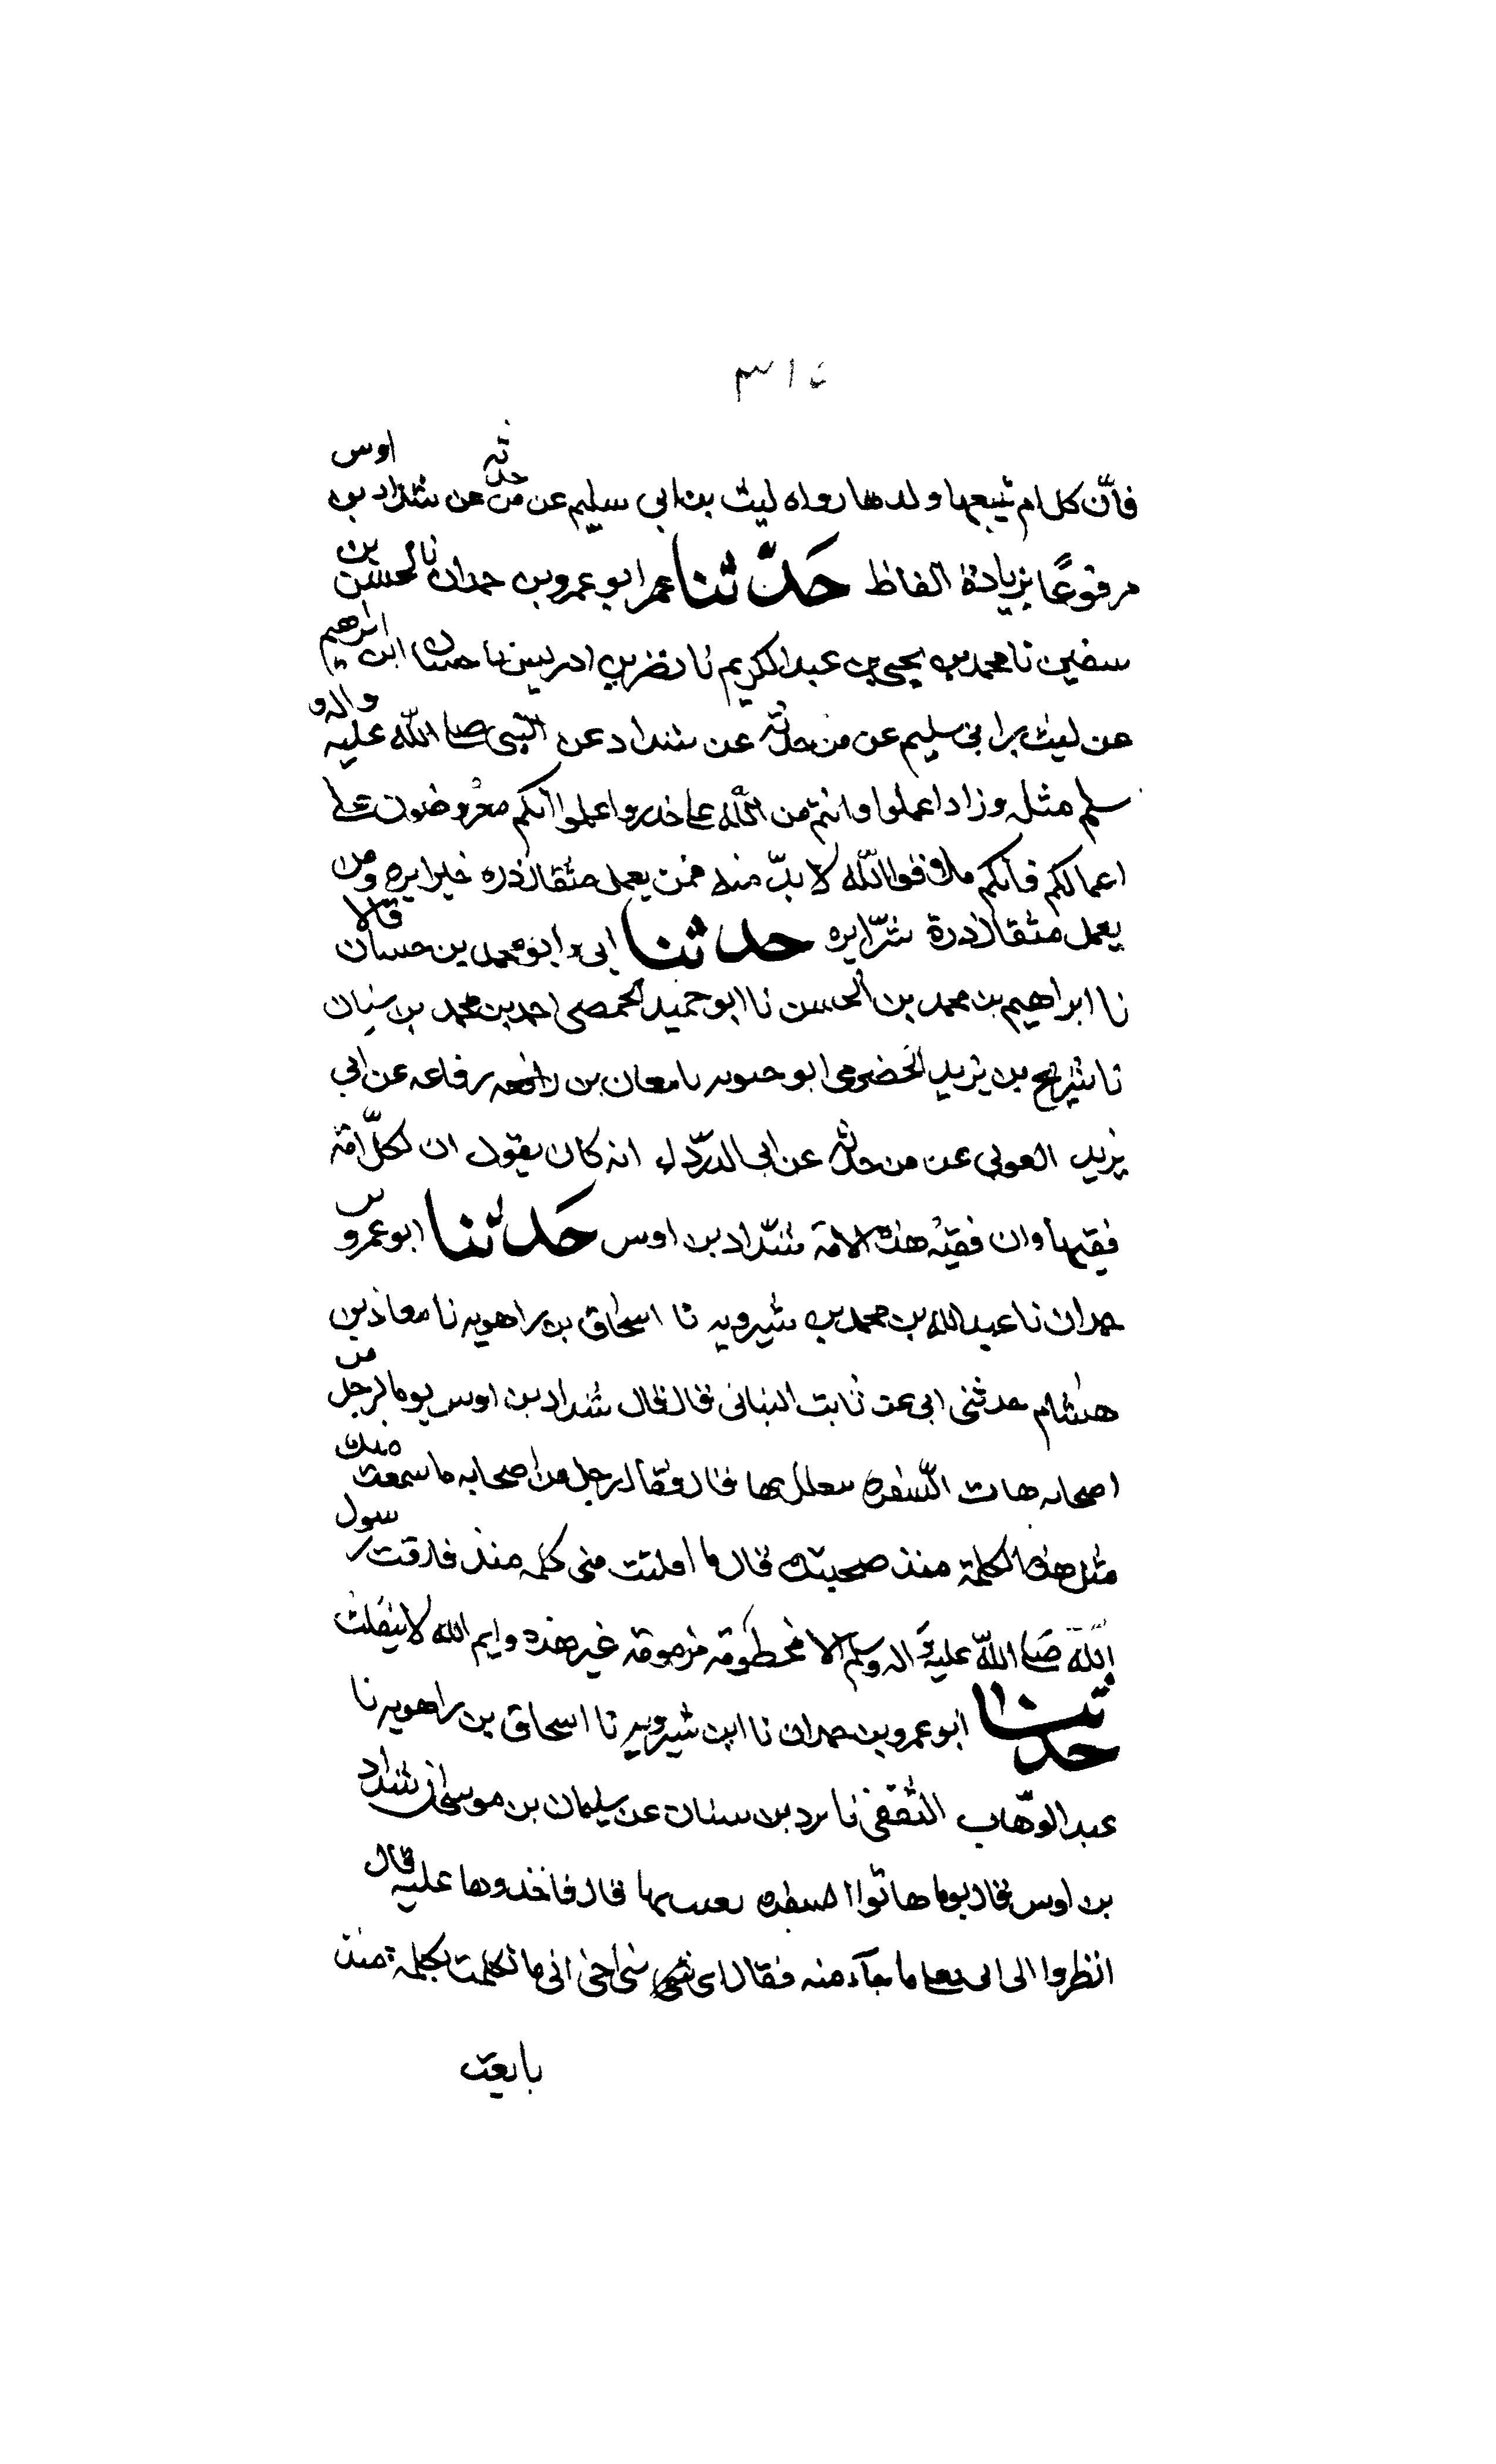 ٣١٤
فانّ كل ام يتبعها ولدها رواه ليث بن ابي سليم عن من حدثه عن شداد بن اوس
مرفوعًا بزيادة الفاظ حَدّثنا عمر ابو عمرو بن حمدان نا الحسن بن
سفين نا محمد بن يحيى بن عبد الكريم نا نضر بن ادريس نا حسان ابن ابرهيم
عن ليث بن ابي سليم عن من حدثه عن شداد عن النبي صلى الله عليه واله و
سلم مثله وزاد اعملوا وانتم من الله على حذر واعملوا انكم معروضون على
اعمالكم فانكم ملاقوا الله لا بدّ منه فمن يعمل مثقال ذره خيرا يره ومن
يعمل مثقال ذرة شرّا يره حدثنا ابي و ابو محمد بن حسان قالا
نا ابراهيم بن محمد بن الحسن نا ابو حميد الحمصي احمد بن محمد بن سنان
نا شريح بن يزيد الحضرمي ابو حيوه نا معان بن رفاعه عن ابي
يزيد الغوثي عن من حدثه عن ابي الدرداء انه كان يقول ان لكلّ امة
فقيها وان فقيه هذه الامة شدّاد بن اوس حَدثنا ابو عمرو بن
حمدان نا عبد الله بن محمد بن شيرويه نا اسحاق بن راهويه نا معاذ بن
هشام حدثني ابي عن ثابت البناني قال قال شداد بن اوس يوما لرجل من
اصحابه هات السّفره نتعلل بها قال فقال رجل من اصحابه ما سمعت منك
مثل هذه الكلمة منذ صحبتك قال ما افلتت مني كلمه منذ فارقت رسول
الله صَلى الله عليه وَ اله وسلم الا مخطومة مزمومة غير هذه وايم الله لا ينفلت
حدثنا ابو عمرو بن حمدان نا ابن شيرويه نا اسحاق بن راهويه نا
عبد الوهّاب الثقفي نا برد بن سنان عن سليمان بن موسى ان شداد
بن اوس قال يوما هاتوا السفره نعبث بها قال فاخذوها عليه قال
انظروا الى ابي يعلى ما جآء منه فقال اى بني اخي اني ما تكلمت بكلمة منذ
بايعت